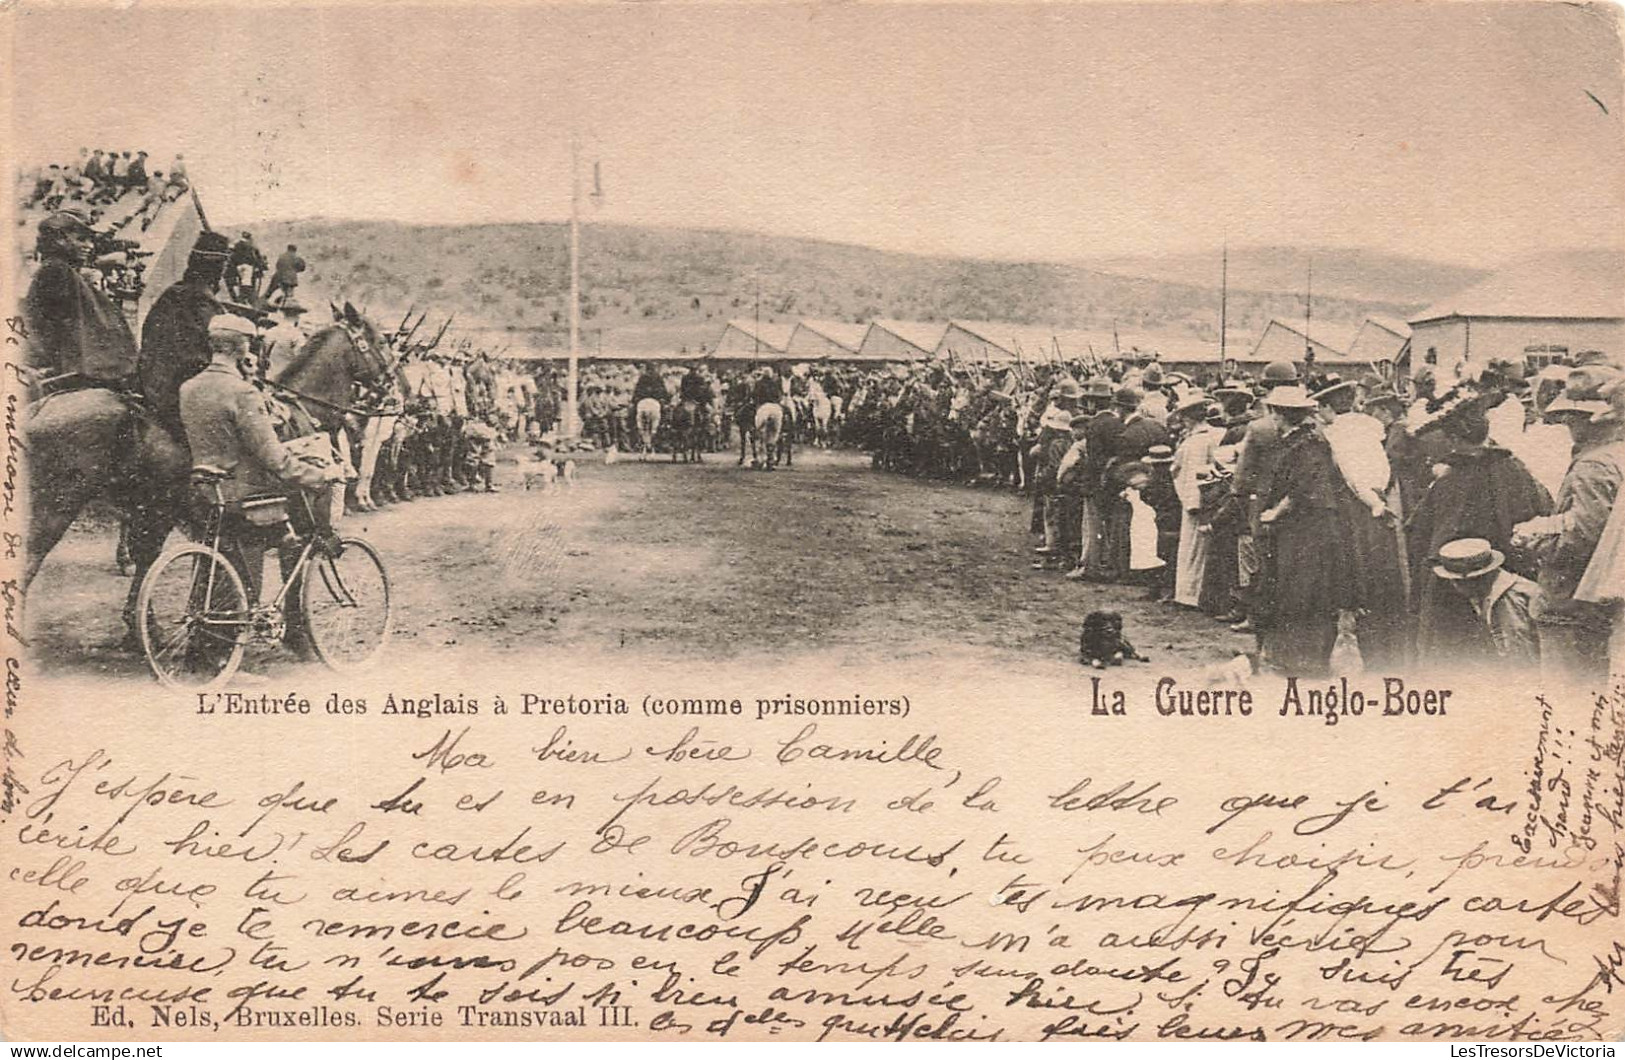 L'Entrée des Anglais à Pretoria (comme prisonniers)
La Guerre Anglo-Boer
Ma bien chère Camille,
J'espère que tu es en possession de la lettre que je t'ai
écrite hier! Les cartes de Bonsecours, tu peux choisir, prends
celle que tu aimes le mieux. J'ai reçu tes magnifiques cartes
dont je te remercie beaucoup, Melle m'a aussi écrit pour
remercier, tu n'auras pas eu le temps sans doute? Je suis très
heureuse que tu te sois si bien amusée hier, si tu vas encore chez
les delles fais leur mes amitiés
Ed. Nels, Bruxelles. Serie Transvaal III.
Je t'embrasse de tout cœur de loin.
Excessivement
chaud!!!
Jeanne et moi
LesTresorsDeVictoria.com